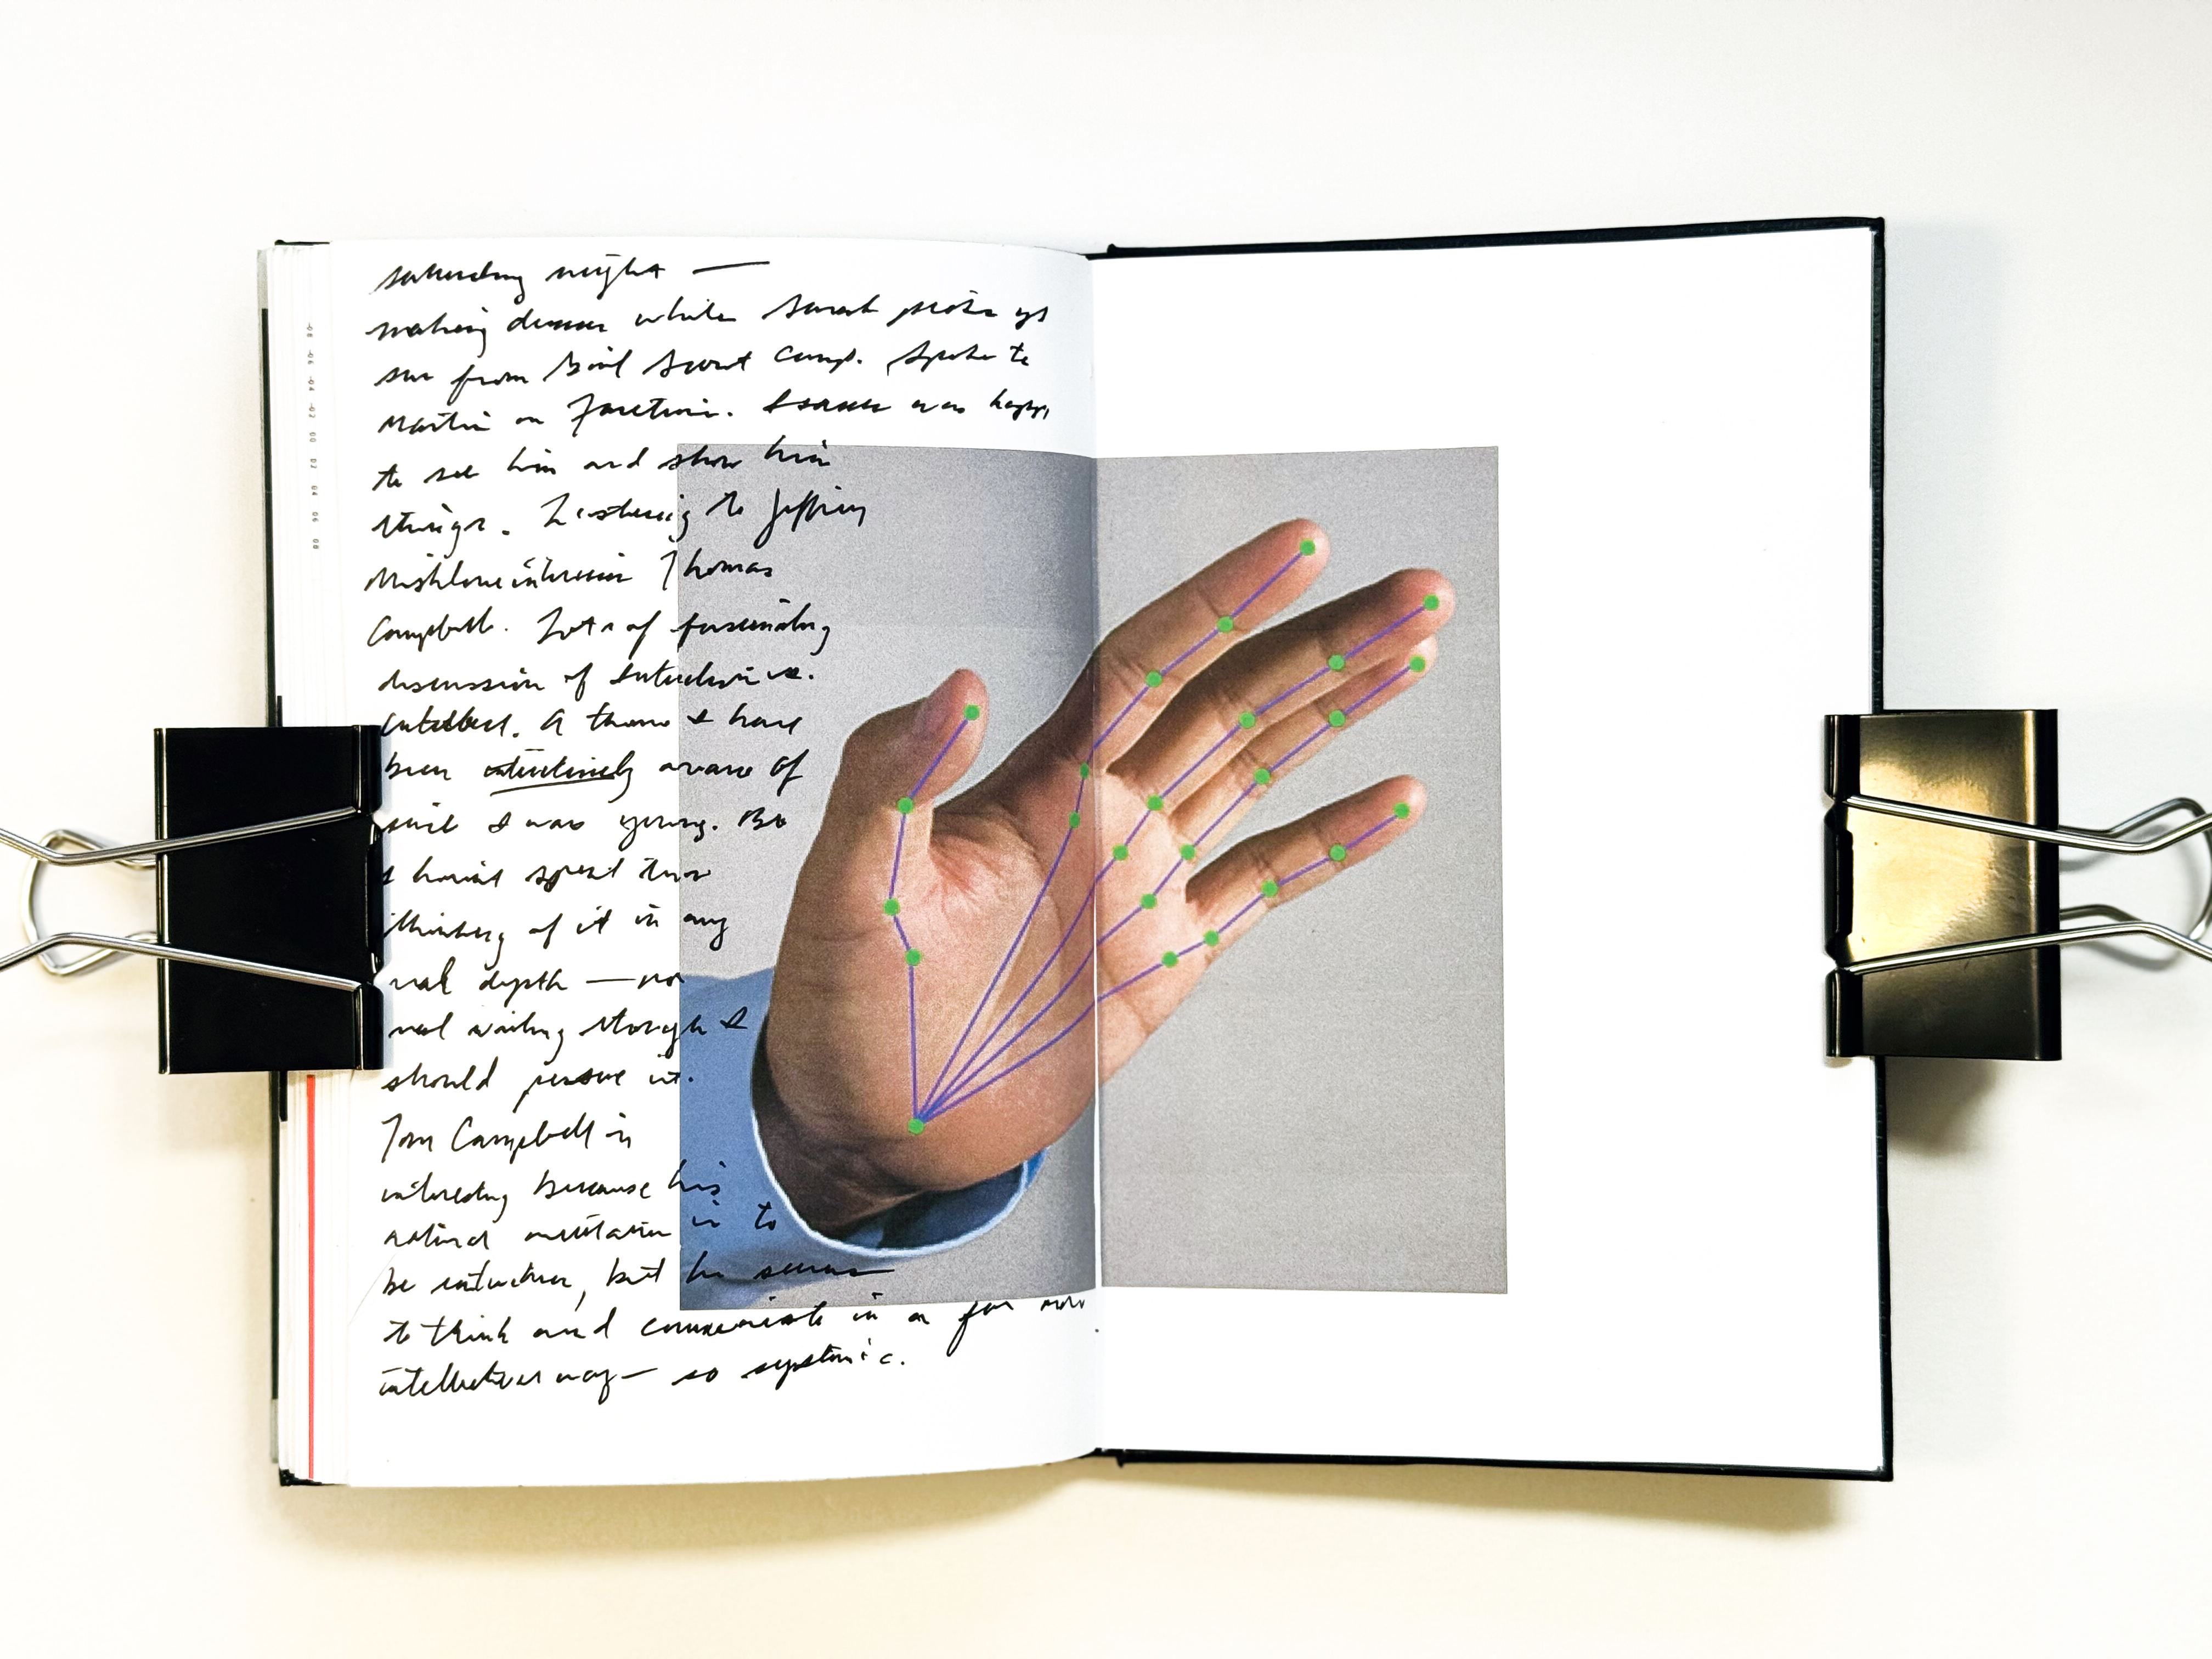 saturday night —
making dinner while Sarah picks up
from Girl Scout Camp. Spoke to
Martin on Facetime. was happy
to see him and show him
things. Listening to Jeffrey
Mishlove interview Thomas
Campbell. Lots of fascinating
discussion of intuitive vs.
intellect. A theme I have
been intuitively aware of
since I was young. But
I haven't spent time
thinking of it in any
real depth — no
real writing though I
should pursue it.
Tom Campbell is
interesting because his
natural orientation is to
be intuitive, but he seems
to think and communicate in a far more
intellectual way — so systemic.
-08 -06 -04 -02 00 02 04 06 08